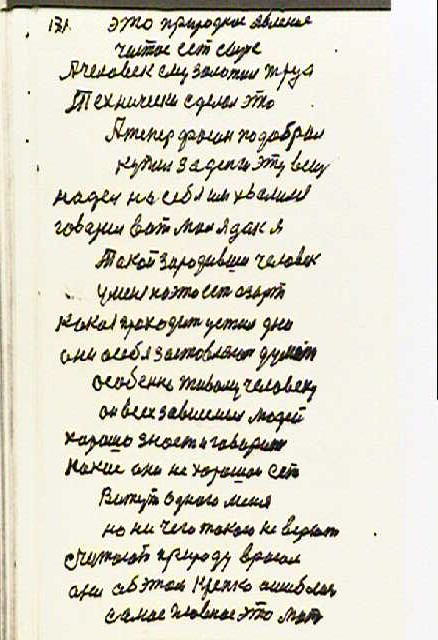 131. это природное явление
чистое ест
А человек
Технически сделал это
А тепер подобрал
купил за денги эту вещ
надел на себя им хвалился
говорил вот моя
Такой зародивши человек
у меня на это ест азарт
какая проходит
они себя заставляют думат
особенно живому человеку
он всех зависимых людей
хорошо знает и говорит
какие они не хорошие ест
Вижут одного меня
но ни чего такого не верют
считают природу врагом
они об этом крепко ошиблис
самое главное это мат